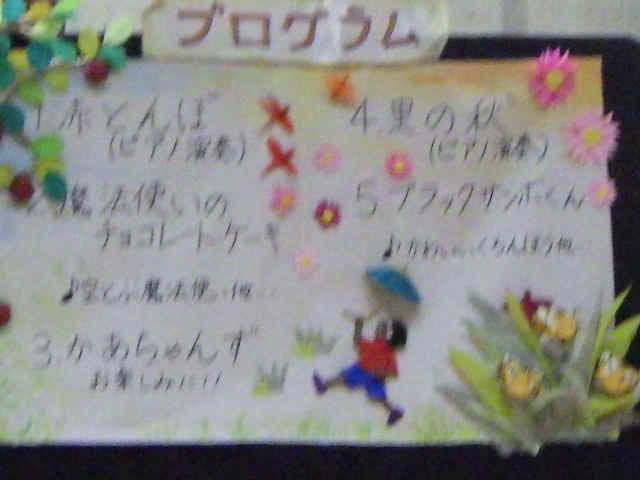 プログラム
1.赤とんぼ
(ピアノ演奏)
2.魔法使いの
チョコレートケーキ
♪空とぶ魔法使い他…
3.かあちゃんず
お楽しみに!!
4.里の秋
(ピアノ演奏)
5ブラックサンボくん
♪かわいいかくれんぼう他…